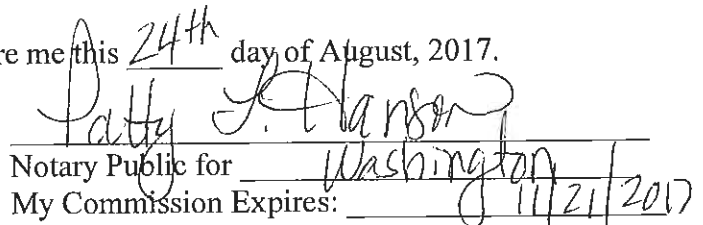 re me this 24th day of August, 2017.
Patty L. Hanson
Notary Public for Washington
My Commission Expires: 11/21/2017